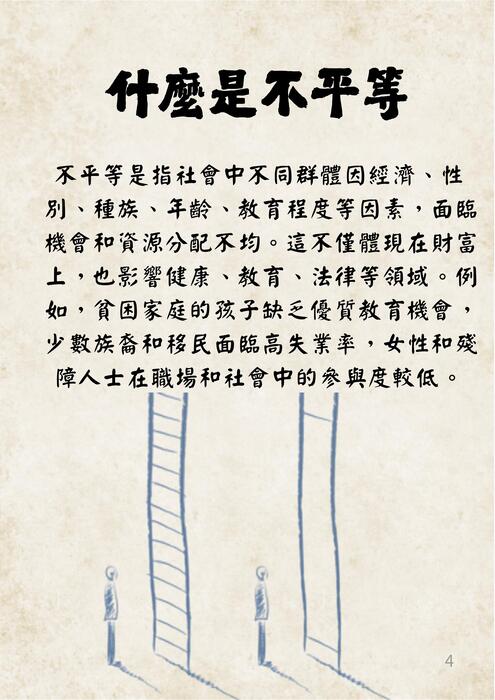 什麼是不平等
不平等是指社會中不同群體因經濟、性
別、種族、年齡、教育程度等因素，面臨
機會和資源分配不均。這不僅體現在財富
上，也影響健康、教育、法律等領域。例
如，貧困家庭的孩子缺乏優質教育機會，
少數族裔和移民面臨高失業率，女性和殘
障人士在職場和社會中的參與度較低。
4